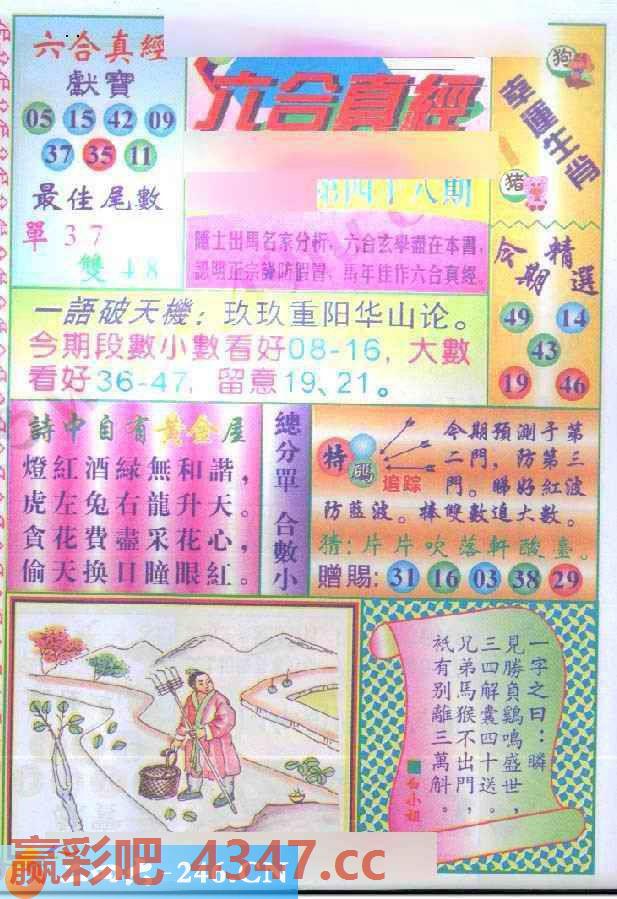 六合真經
獻寶
05 15 42 09
37 35 11
最佳尾數
單 3 7
雙 4 8
六合真經
第四十八期
隱士出馬名家分析，六合玄學盡在本書，
認明正宗謹防假冒，馬年佳作六合真經。
幸運生肖
狗
豬
今期精選
49 14
43
19 46
一語破天機：玖玖重阳华山论。
今期段數小數看好08-16，大數
看好36-47，留意19、21。
詩中自有黃金屋
燈紅酒綠無和諧，
虎左兔右龍升天。
貪花費盡采花心，
偷天換日瞳眼紅。
總分單 合數小
特碼
追踪
今期預測于第
二門，防第三
門。睇好紅波
防藍波。捧雙數追大數。
猜：片片吹落軒
贈賜：31 16 03 38 29
一字之曰：瞬
見勝負雞鳴盛世，
三四解囊四十送。
兄弟馬猴不出門，
衹有別離三萬斛。
白小姐
赢彩吧 4347.cc
246.CN